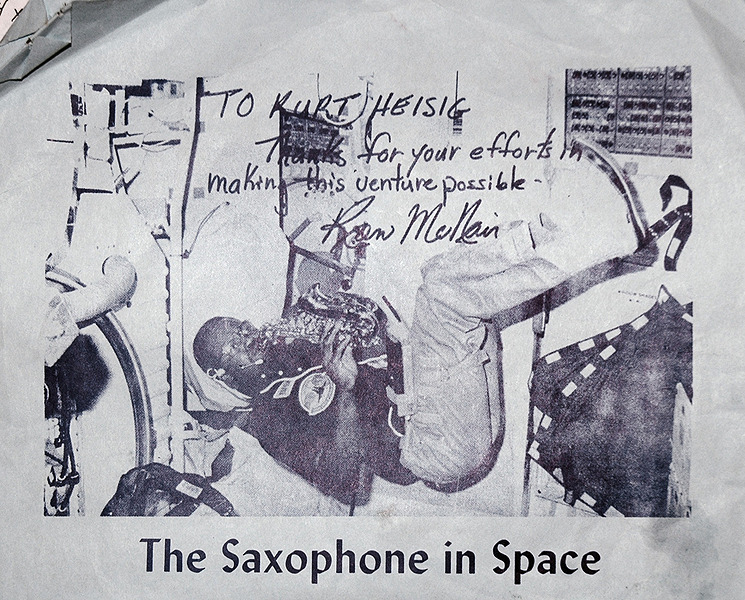 TO KURT HEISIG
Thanks for your efforts in
making this venture possible -
Ron McNair
The Saxophone in Space